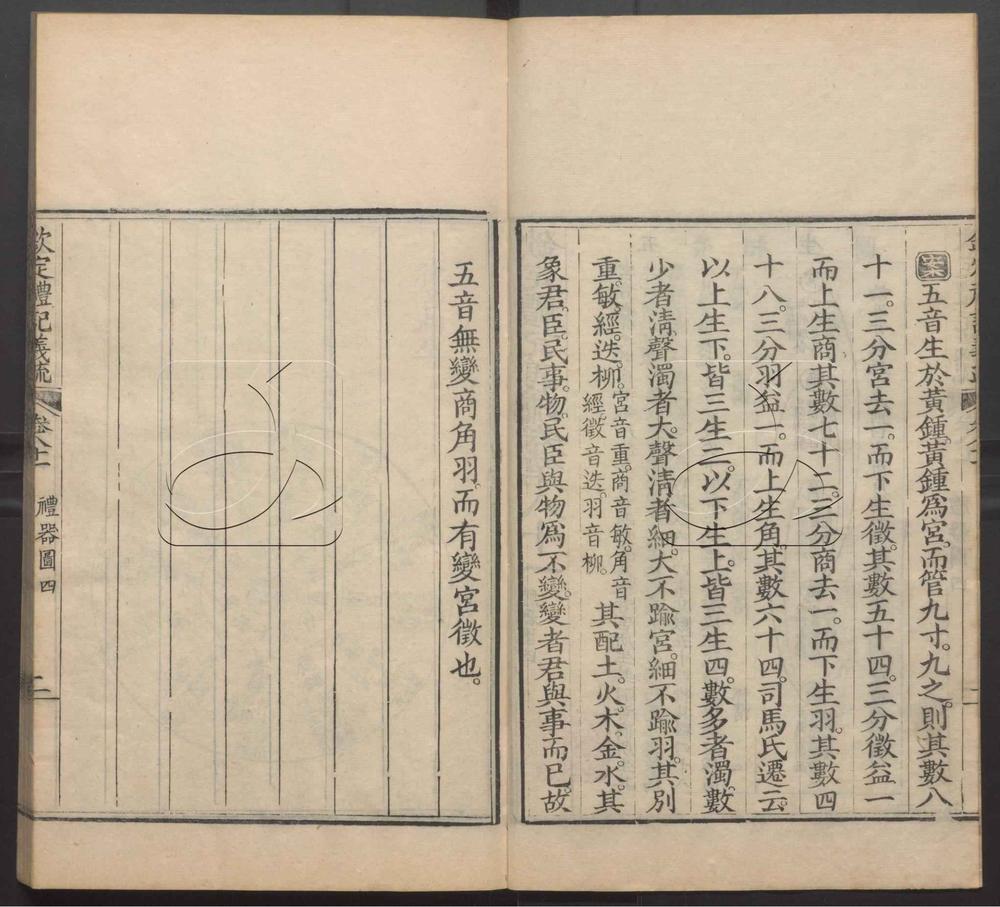 案五音生於黃鍾。黃鍾爲宮。而管九寸。九之。則其數八
十一。三分宮去一。而下生徵。其數五十四。三分徵益一
而上生商。其數七十二。三分商去一。而下生羽。其數四
十八。三分羽益一。而上生角。其數六十四。司馬氏遷云。
以上生下。皆三生二。以下生上。皆三生四。數多者濁。數
少者清。聲濁者大。聲清者細。大不踰宮。細不踰羽。其別
重。敏。經。迭。柳。宮音重。商音敏。角音
經。徵音迭。羽音柳。其配土。火。木。金。水。其
象君。臣。民。事。物。民臣與物爲不變。變者君與事而已。故
五音無變商角羽。而有變宮徵也。
欽定禮記義疏 卷八十一 禮器圖四 二